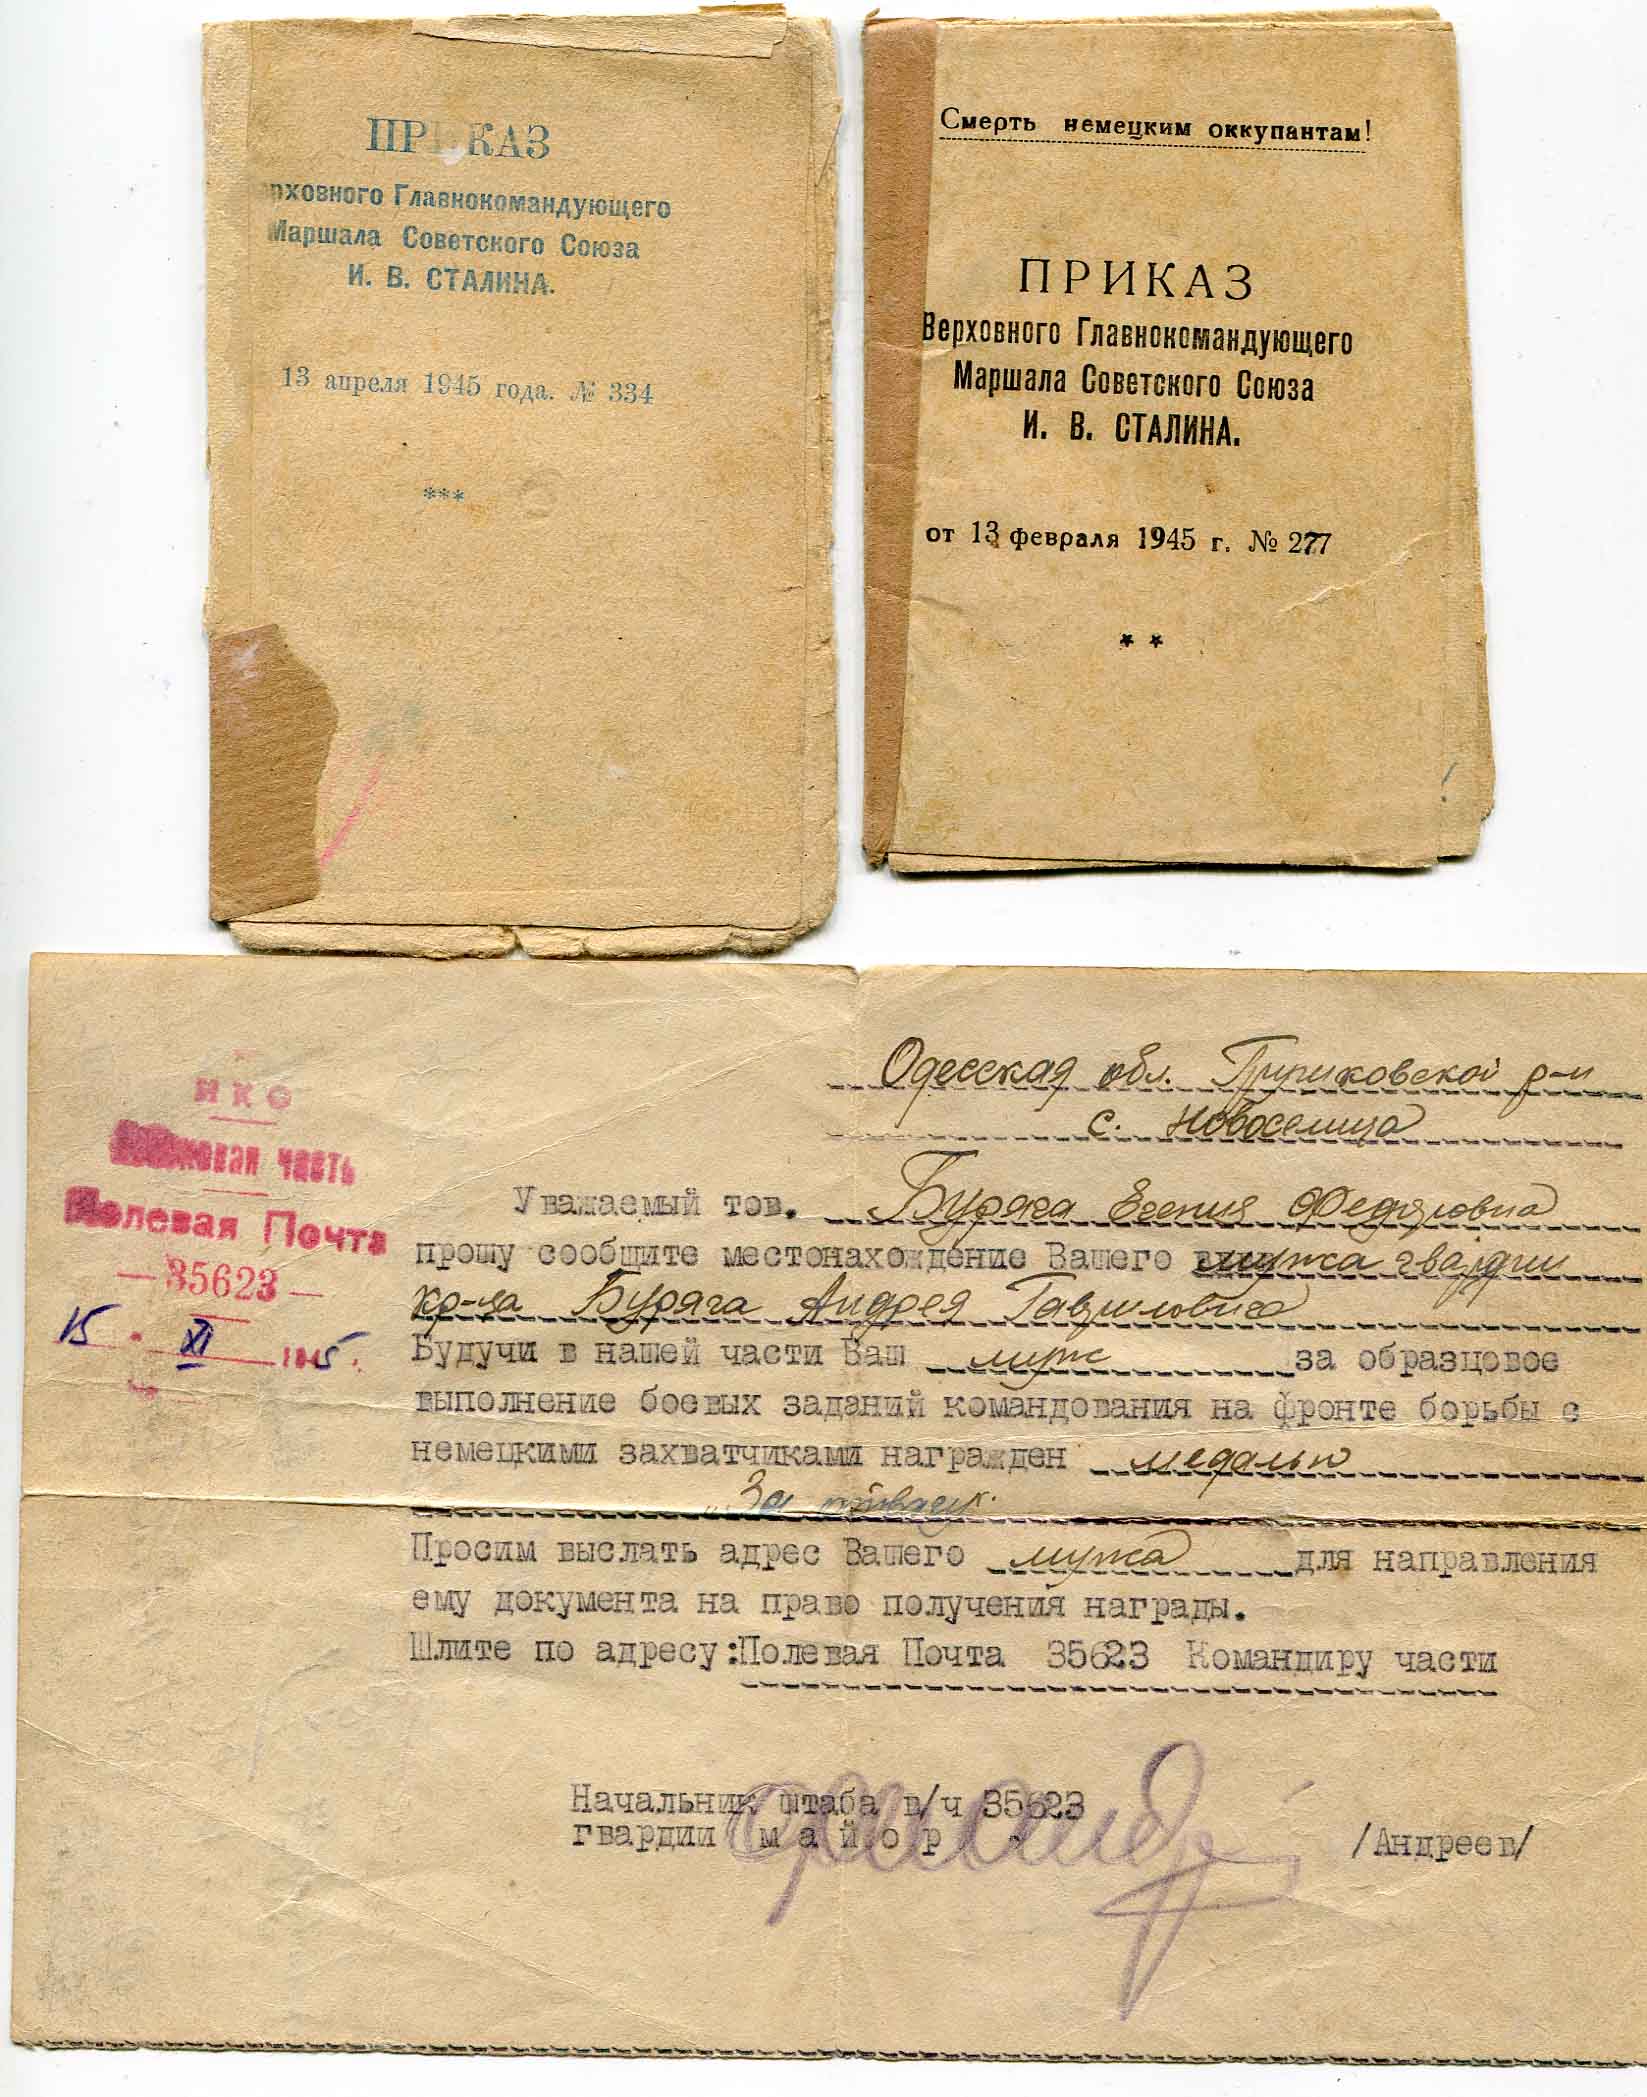 ПРИКАЗ
рховного Главнокомандующего
Маршала Советского Союза
И. В. СТАЛИНА.
13 апреля 1945 года. № 334
***
Смерть немецким оккупантам!
ПРИКАЗ
Верховного Главнокомандующего
Маршала Советского Союза
И. В. СТАЛИНА.
от 13 февраля 1945 г. № 277
* *
НКО
часть
Полевая Почта
— 35623 —
15 XI 1945
Одесская обл. р-н
с. Новоселица
Уважаемый тов. Буряга Евгения Федоровна
прошу сообщите местонахождение Вашего мужа гвардии
кр-ца Буряга Андрея Гавриловича
Будучи в нашей части Ваш муж за образцовое
выполнение боевых заданий командования на фронте борьбы с
немецкими захватчиками награжден медалью
„За отвагу.
Просим выслать адрес Вашего мужа для направления
ему документа на право получения награды.
Шлите по адресу:Полевая Почта 35623 Командиру части
Начальник штаба в/ч 35623
гвардии майор /Андреев/